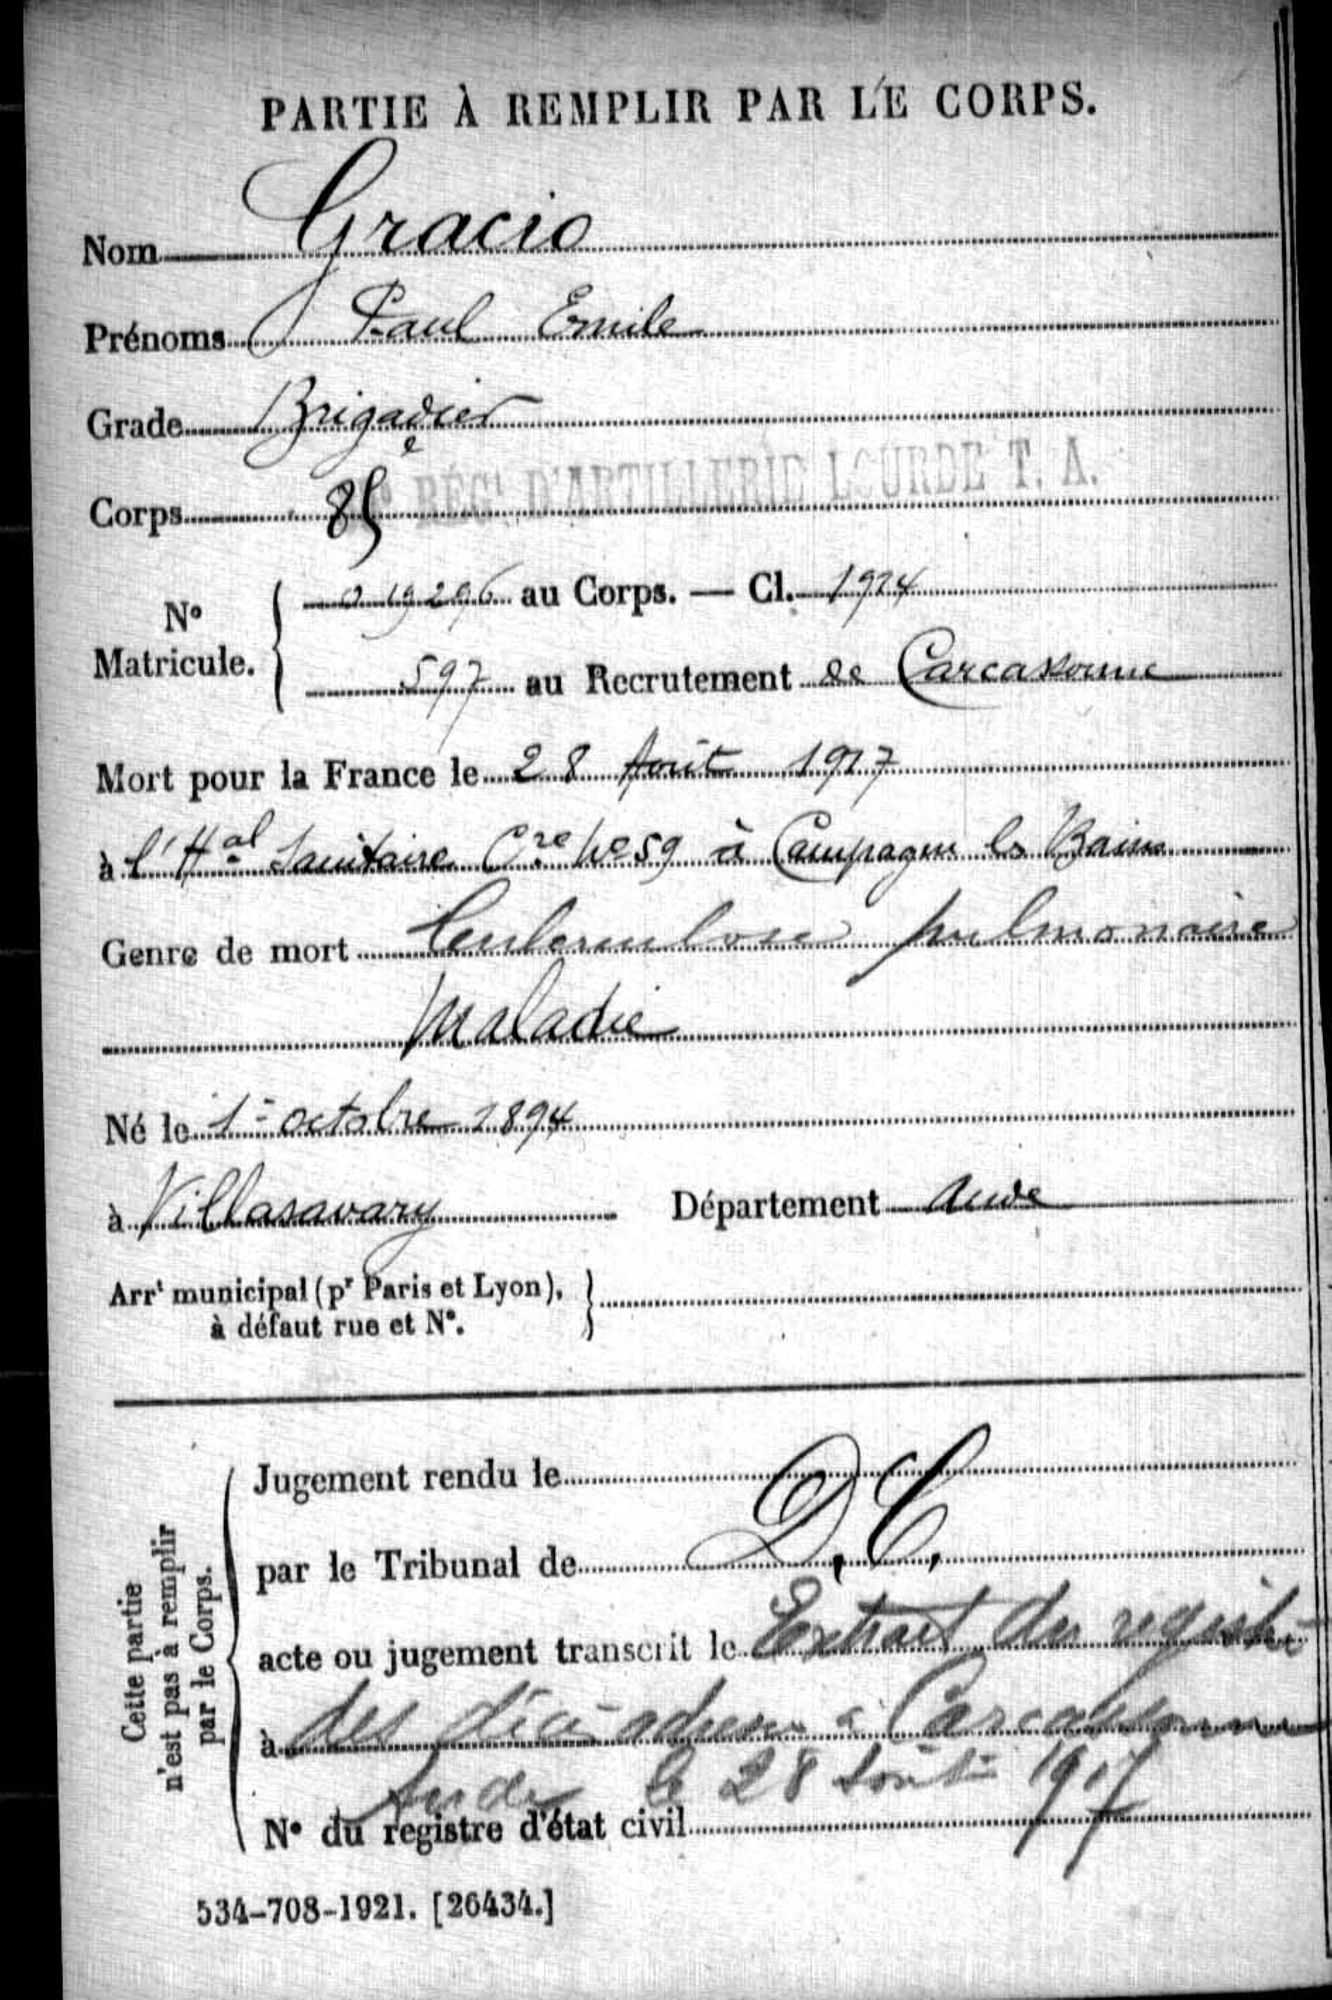 PARTIE À REMPLIR PAR LE CORPS.
Nom Gracio
Prénoms Paul Emile
Grade Brigadier
Corps 85e RÉGt D'ARTILLERIE LOURDE T. A.
No Matricule. 019296 au Corps. — Cl. 1914
597 au Recrutement de Carcassonne
Mort pour la France le 28 Août 1917
à l'Hal Sanitaire Cre No 59 à Campagne les Bains
Genre de mort Tuberculose pulmonaire
Maladie
Né le 1er octobre 1894
à Villasavary Département Aude
Arrt municipal (pr Paris et Lyon),
à défaut rue et No.
Cette partie
n'est pas à remplir
par le Corps.
Jugement rendu le
par le Tribunal de D. C.
acte ou jugement transcrit le Extrait du registre
à des décès à Carcassonne
Aude le 28 Août 1917
No du registre d'état civil
534-708-1921. [26434.]